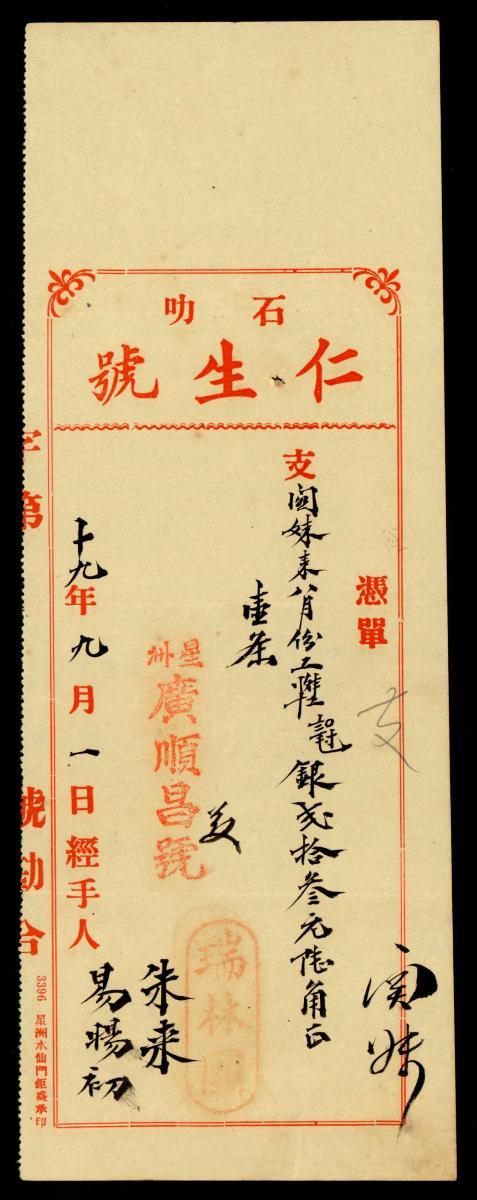 石叻
仁生號
憑單
支
支 妹來八月份工 銀弍拾叁元陸角正
壹条
星洲
廣順昌號
瑞林
朱来
十九年九月一日經手人
易暘初
字第 號勘合
3396 星洲水仙門鉅盛承印